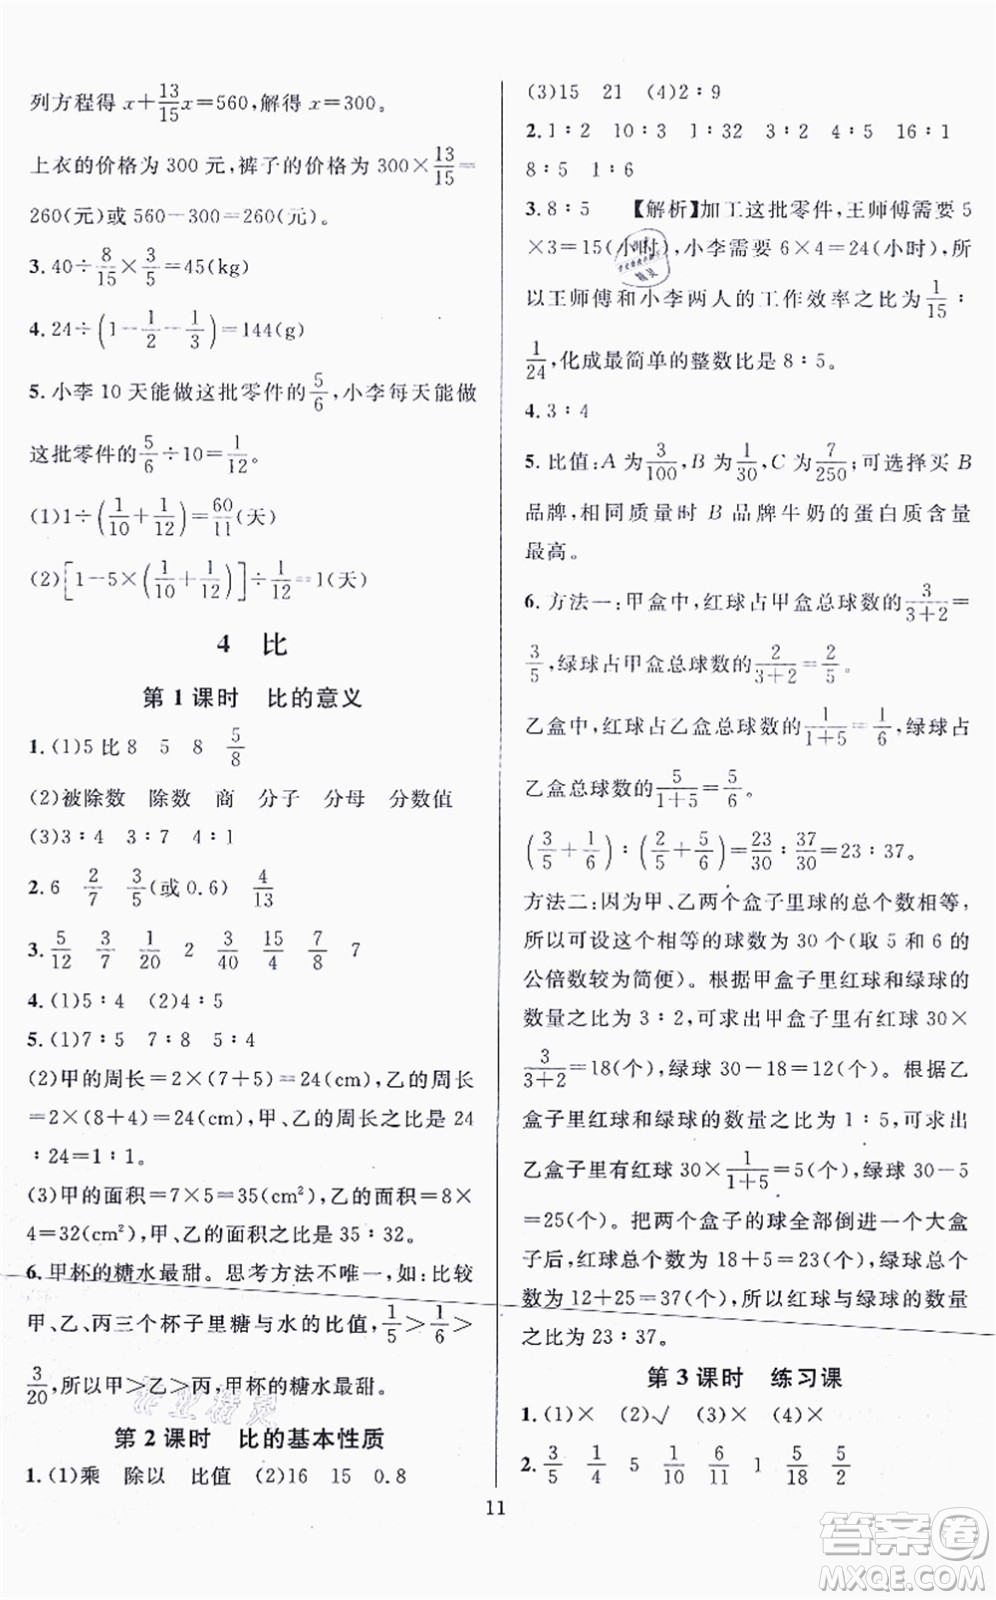 列方程得 x+13/15x=560,解得 x=300。
上衣的价格为 300 元,裤子的价格为 300×13/15=
260(元)或 560-300=260(元)。
3.40÷8/15×3/5=45(kg)
4.24÷(1-1/2-1/3)=144(g)
5.小李 10 天能做这批零件的5/6,小李每天能做
这批零件的5/6÷10=1/12。
(1)1÷(1/10+1/12)=60/11(天)
(2)[1-5×(1/10+1/12)]÷1/12=1(天)
4 比
第 1 课时 比的意义
1.(1)5 比 8 5 8 5/8
(2)被除数 除数 商 分子 分母 分数值
(3)3∶4 3∶7 4∶1
2.6 2/7 3/5(或 0.6) 4/13
3.5/12 3/7 1/20 2 3/40 15/8 7/8 7
4.(1)5∶4 (2)4∶5
5.(1)7∶5 7∶8 5∶4
(2)甲的周长=2×(7+5)=24(cm),乙的周长
=2×(8+4)=24(cm),甲、乙的周长之比是 24
∶24=1∶1。
(3)甲的面积=7×5=35(cm²),乙的面积=8×
4=32(cm²),甲、乙的面积之比是 35∶32。
6.甲杯的糖水最甜。思考方法不唯一,如:比较
甲、乙、丙三个杯子里糖与水的比值,1/5>1/6>
3/20,所以甲>乙>丙,甲杯的糖水最甜。
作业精灵
第 2 课时 比的基本性质
1.(1)乘 除以 比值 (2)16 15 0.8
(3)15 21 (4)2∶9
2.1∶2 10∶3 1∶32 3∶2 4∶5 16∶1
8∶5 1∶6
3.8∶5 【解析】加工这批零件,王师傅需要 5
×3=15(小时),小李需要 6×4=24(小时),所
以王师傅和小李两人的工作效率之比为1/15∶
1/24,化成最简单的整数比是 8∶5。
4.3∶4
5.比值:A 为3/100,B 为1/30,C 为7/250;可选择买 B
品牌,相同质量时 B 品牌牛奶的蛋白质含量
最高。
6.方法一:甲盒中,红球占甲盒总球数的3/(3+2)=
3/5,绿球占甲盒总球数的2/(3+2)=2/5。
乙盒中,红球占乙盒总球数的1/(1+5)=1/6,绿球占
乙盒总球数的5/(1+5)=5/6。
(3/5+1/6)∶(2/5+5/6)=23/30∶37/30=23∶37。
方法二:因为甲、乙两个盒子里球的总个数相等,
所以可设这个相等的球数为 30 个(取 5 和 6 的
公倍数较为简便)。根据甲盒子里红球和绿球的
数量之比为 3∶2,可求出甲盒子里有红球 30×
3/(3+2)=18(个),绿球 30-18=12(个)。根据乙
盒子里红球和绿球的数量之比为 1∶5,可求出
乙盒子里有红球 30×1/(1+5)=5(个),绿球 30-5
=25(个)。把两个盒子的球全部倒进一个大盒
子后,红球总个数为 18+5=23(个),绿球总个
数为 12+25=37(个),所以红球与绿球的数量
之比为 23∶37。
第 3 课时 练习课
1.(1)× (2)√ (3)× (4)×
2.3/5 1/4 5 1/10 6/11 1 5/18 5/2
11
答案圈
MXQE.COM